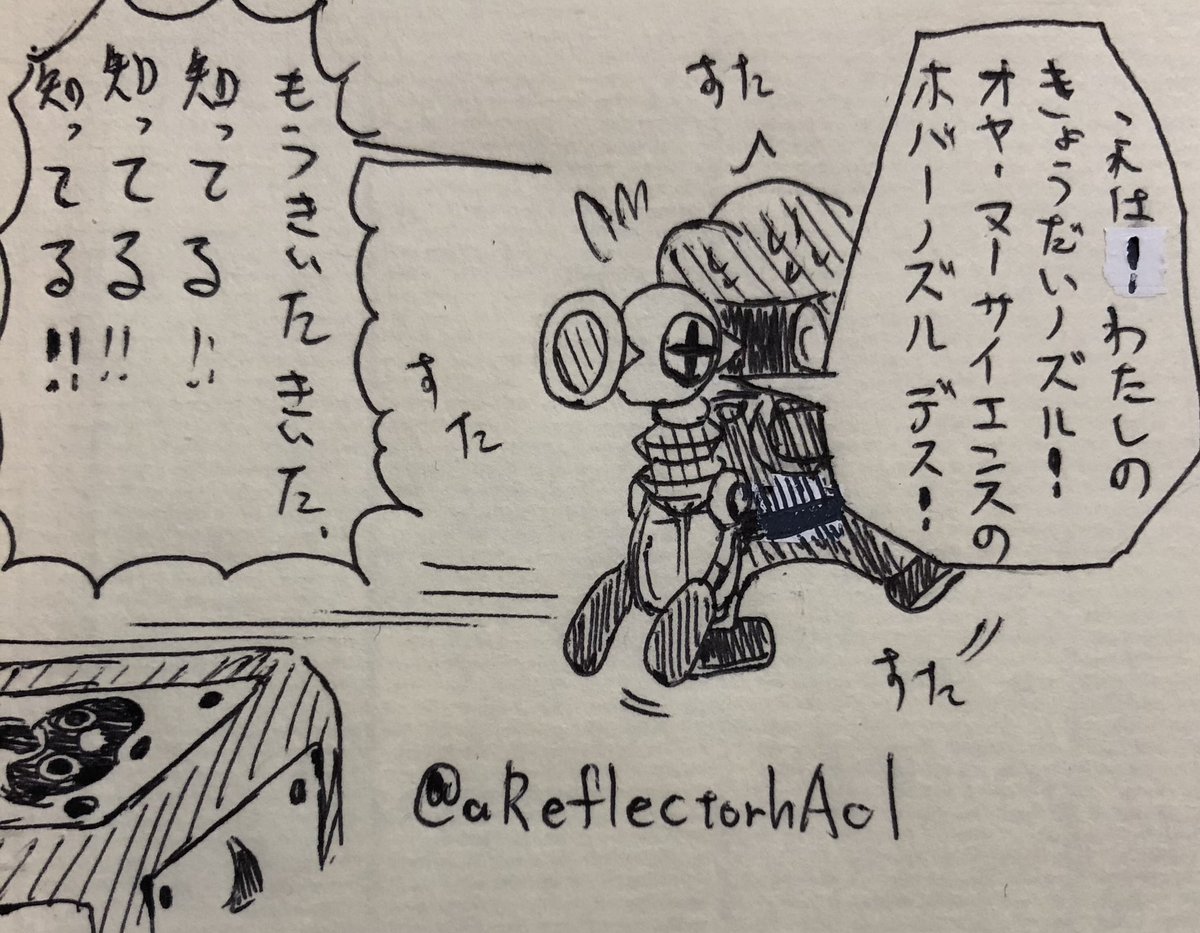 これは！わたしの
きょうだいノズル！
オヤ・マーサイエンスの
ホバーノズルデス！
すた
すた
すた
もうきいたきいた、
知ってる!!
知ってる!!
知ってる!!
@aReflectorhAol